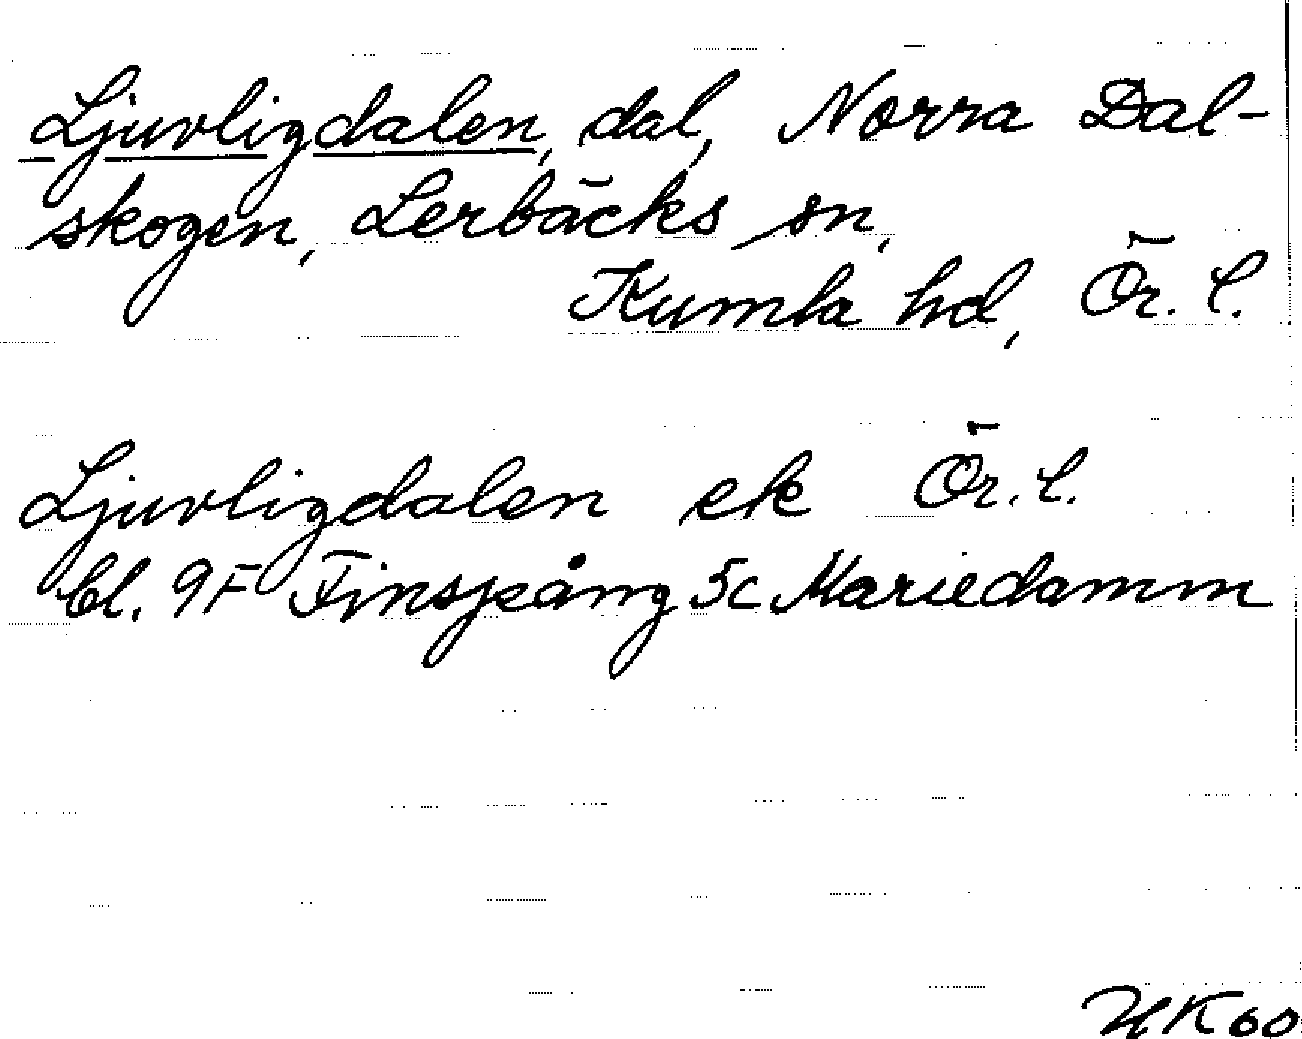 Ljuvligdalen, dal, Norra Dal-
skogen, Lerbäcks sn,
Kumla hd, Ör. l.
Ljuvligdalen ek Ör. l.
bl. 9F Finspång 5c Mariedamm
HK60